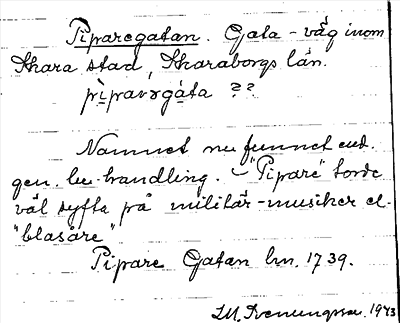 Piparegatan. Gata - väg inom
Skara stad, Skaraborgs län.
pìparərgáta ??
Namnet nu funnet end.
gen. bu-handling. - "Pipare" torde
väl syfta på militär-musiker el.
"blasåre"
Pipare Gatan bn. 1739.
1943